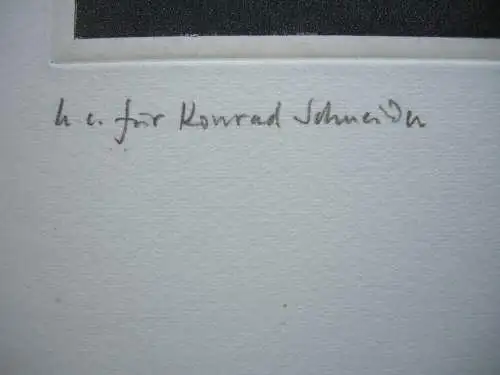 h c. für Konrad Schneider